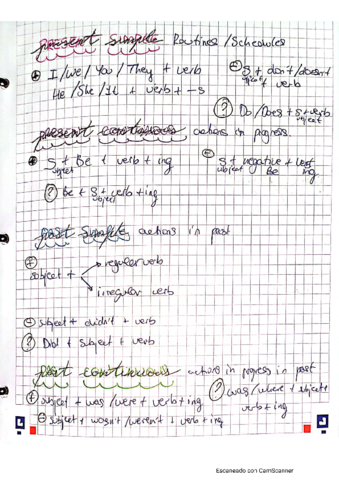 present simple Routines / Schedules
⊕ I / we / You / They + verb
He / She / It + verb + -s
⊖ S + don't / doesn't + verb
? Do / Does + S + verb
subject
present continuous actions in progress
⊕ S + Be + verb + ing
subject
⊖ S + negative + verb
subject Be ing
? Be + S + verb + ing
subject
past simple actions in past
⊕
subject + regular verb
irregular verb
⊖ subject + didn't + verb
? Did + subject + verb
past continuous actions in progress in past
⊕ subject + was / were + verb + ing
? was / where + subject +
verb + ing
⊖ subject + wasn't / weren't + verb + ing
Escaneado con CamScanner